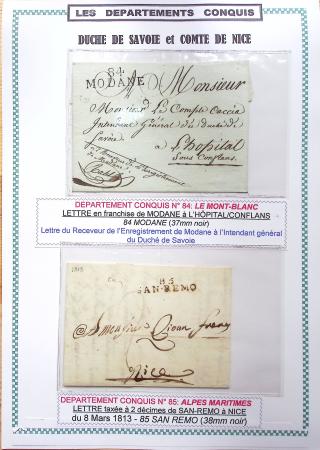 LES DEPARTEMENTS CONQUIS
DUCHE DE SAVOIE et COMTE DE NICE
84
MODANE
A Monsieur
Monsieur Le Compte Caccia
Intendant Général du duché de
Savoie
a L'hopital
Sous Conflans.
DEPARTEMENT CONQUIS N° 84: LE MONT-BLANC
LETTRE en franchise de MODANE à L'HÔPITAL/CONFLANS
84 MODANE (37mm noir)
Lettre du Receveur de l'Enregistrement de Modane à l'Intendant général
du Duché de Savoie
1813
85
SAN-REMO
Nice
DEPARTEMENT CONQUIS N° 85: ALPES MARITIMES
LETTRE taxée à 2 décimes de SAN-REMO à NICE
du 8 Mars 1813 - 85 SAN REMO (38mm noir)